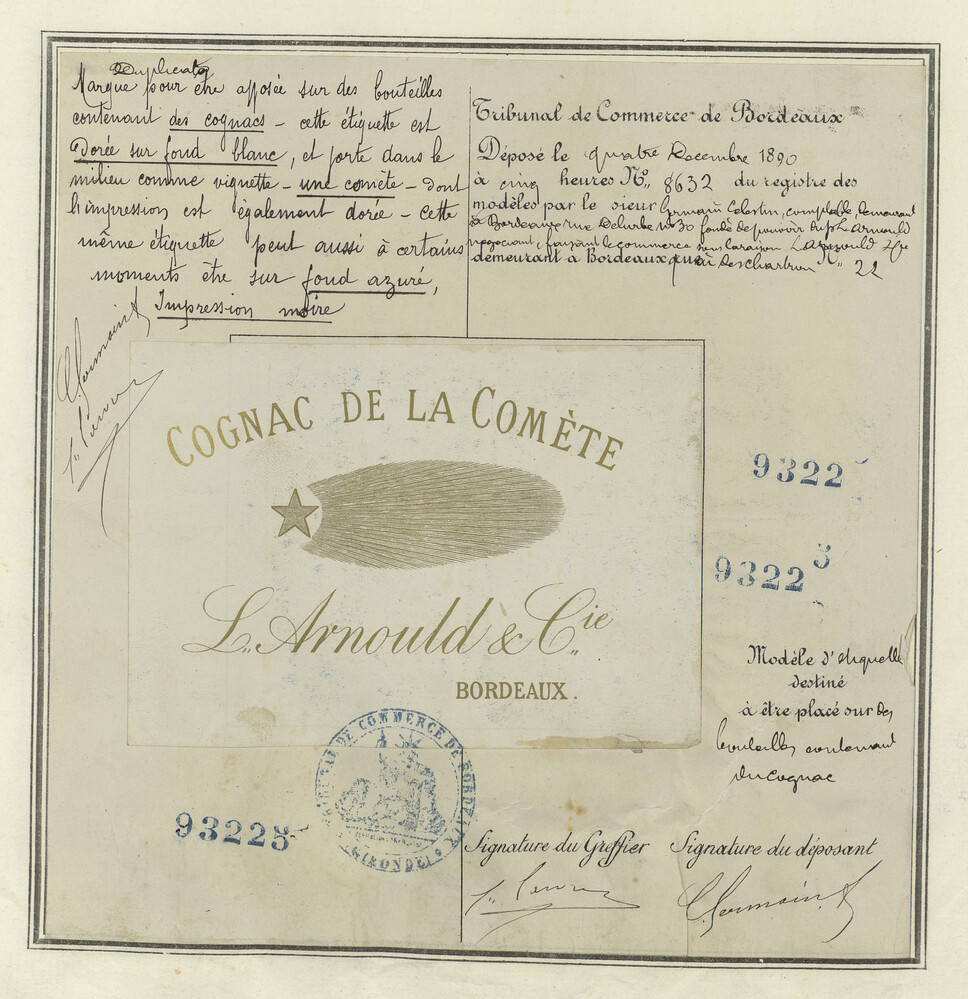 Duplicata
Marque pour être apposée sur des bouteilles
contenant des cognacs - cette étiquette est
Dorée sur fond blanc, et porte dans le
milieu comme vignette - une comète - dont
l'impression est également dorée - cette
même étiquette peut aussi à certains
moments être sur fond azuré,
Impression noire
Tribunal de Commerce de Bordeaux
Déposé le quatre Decembre 1890
à cinq heures No. 8632 du registre des
modèles par le sieur Germain Celestin, comptable, demeurant
à Bordeaux rue No 30 fondé de pouvoir du sr L. Arnould
negociant, faisant le commerce sous la raison L. Arnould & Cie
demeurant à Bordeaux quai des Chartrons No. 22
COGNAC DE LA COMÈTE
L. Arnould & Cie
BORDEAUX.
93225
93225
Modèle d'étiquette
destiné
à être placé sur des
bouteilles contenant
du cognac
TRIBUNAL DE COMMERCE DE BORDEAUX
GIRONDE
93225
Signature du Greffier
Signature du déposant
C. Germain